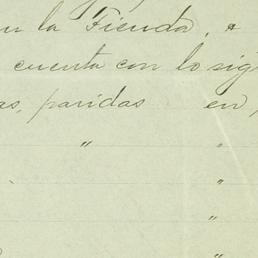 en la Tienda, a
cuenta con lo sig
as, paridas en
" "
"
"
"